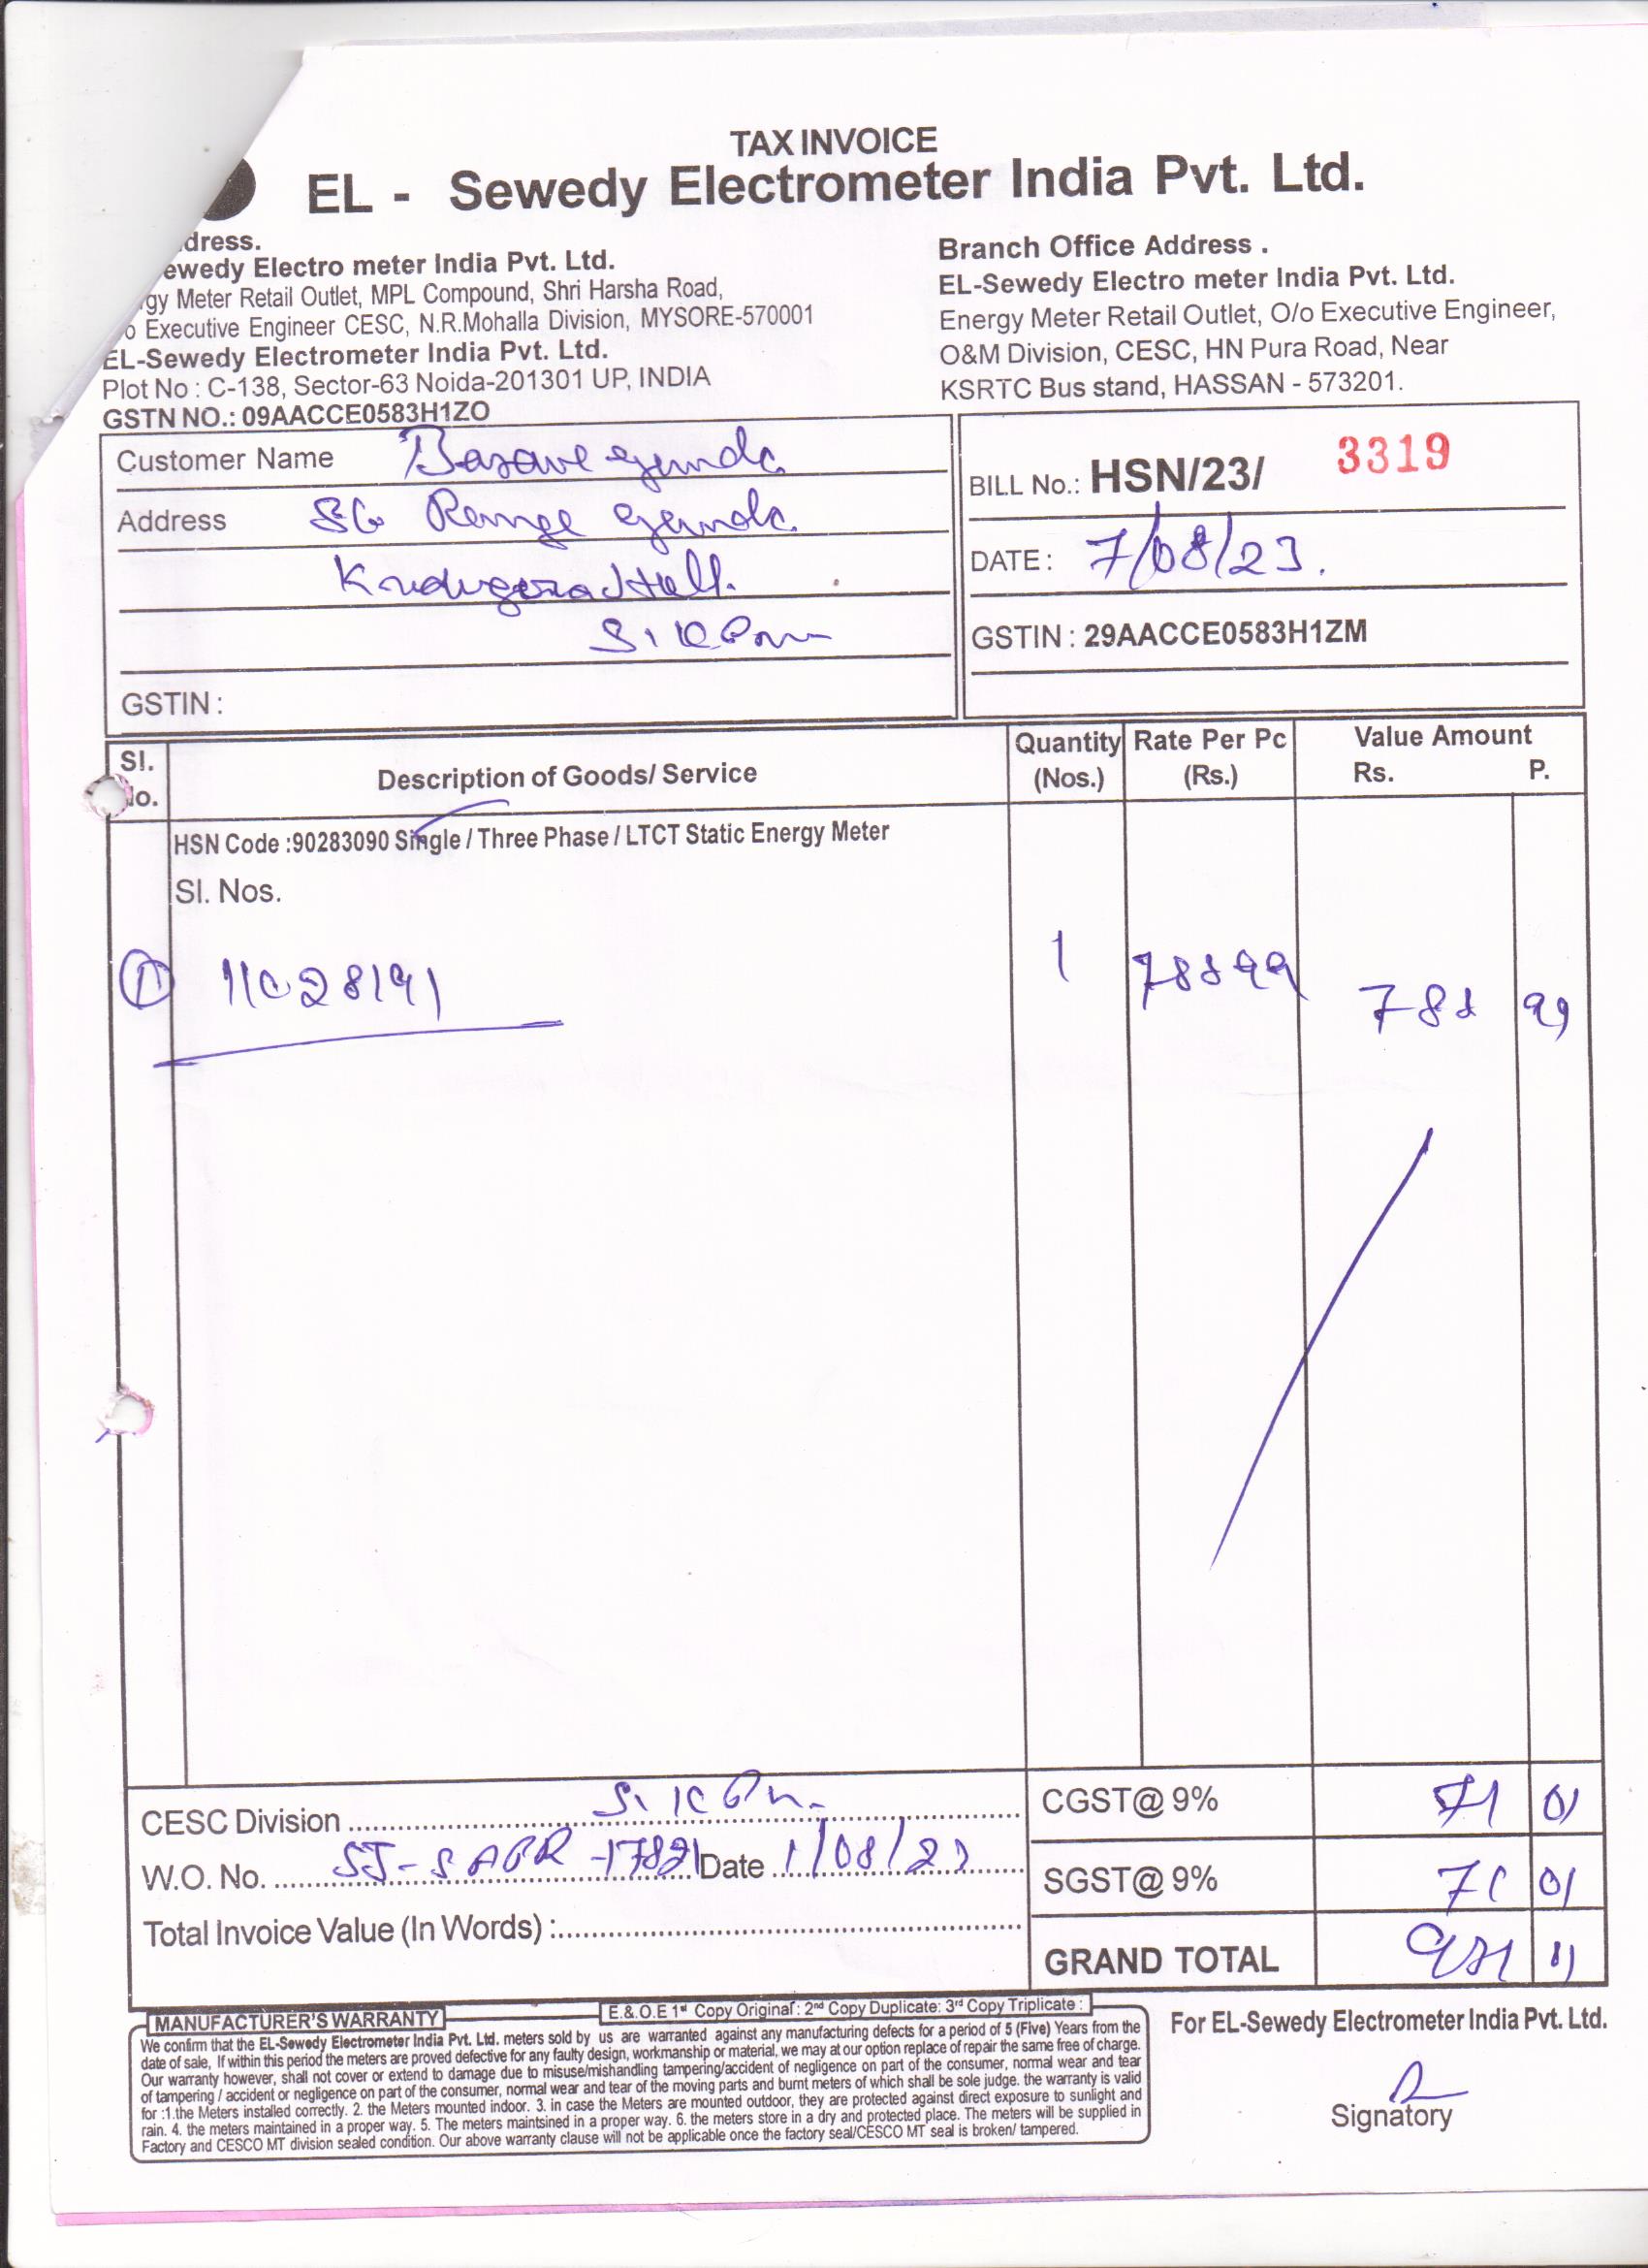 TAX INVOICE
EL - Sewedy Electrometer India Pvt. Ltd.
dress.
ewedy Electro meter India Pvt. Ltd.
gy Meter Retail Outlet, MPL Compound, Shri Harsha Road,
o Executive Engineer CESC, N.R.Mohalla Division, MYSORE-570001
EL-Sewedy Electrometer India Pvt. Ltd.
Plot No : C-138, Sector-63 Noida-201301 UP, INDIA
GSTN NO.: 09AACCE0583H1ZO
Branch Office Address .
EL-Sewedy Electro meter India Pvt. Ltd.
Energy Meter Retail Outlet, O/o Executive Engineer,
O&M Division, CESC, HN Pura Road, Near
KSRTC Bus stand, HASSAN - 573201.
Customer Name
Address
GSTIN :
BILL No.: HSN/23/ 3319
DATE : 7/08/23.
GSTIN : 29AACCE0583H1ZM
Sl. No. Description of Goods/ Service Quantity (Nos.) Rate Per Pc (Rs.) Value Amount Rs. P.
HSN Code :90283090 Single / Three Phase / LTCT Static Energy Meter
Sl. Nos.
1 11028191 1 78899 788 99
CESC Division
W.O. No. Date 1/08/23
Total Invoice Value (In Words) :
CGST@ 9% 71 01
SGST@ 9% 71 01
GRAND TOTAL 931 01
MANUFACTURER'S WARRANTY
E.& O.E 1st Copy Original : 2nd Copy Duplicate: 3rd Copy Triplicate :
We confirm that the EL-Sewedy Electrometer India Pvt. Ltd. meters sold by us are warranted against any manufacturing defects for a period of 5 (Five) Years from the
date of sale, If within this period the meters are proved defective for any faulty design, workmanship or material, we may at our option replace of repair the same free of charge.
Our warranty however, shall not cover or extend to damage due to misuse/mishandling tampering/accident of negligence on part of the consumer, normal wear and tear
of tampering / accident or negligence on part of the consumer, normal wear and tear of the moving parts and burnt meters of which shall be sole judge. the warranty is valid
for :1.the Meters installed correctly. 2. the Meters mounted indoor. 3. in case the Meters are mounted outdoor, they are protected against direct exposure to sunlight and
rain. 4. the meters maintained in a proper way. 5. The meters maintsined in a proper way. 6. the meters store in a dry and protected place. The meters will be supplied in
Factory and CESCO MT division sealed condition. Our above warranty clause will not be applicable once the factory seal/CESCO MT seal is broken/ tampered.
For EL-Sewedy Electrometer India Pvt. Ltd.
Signatory